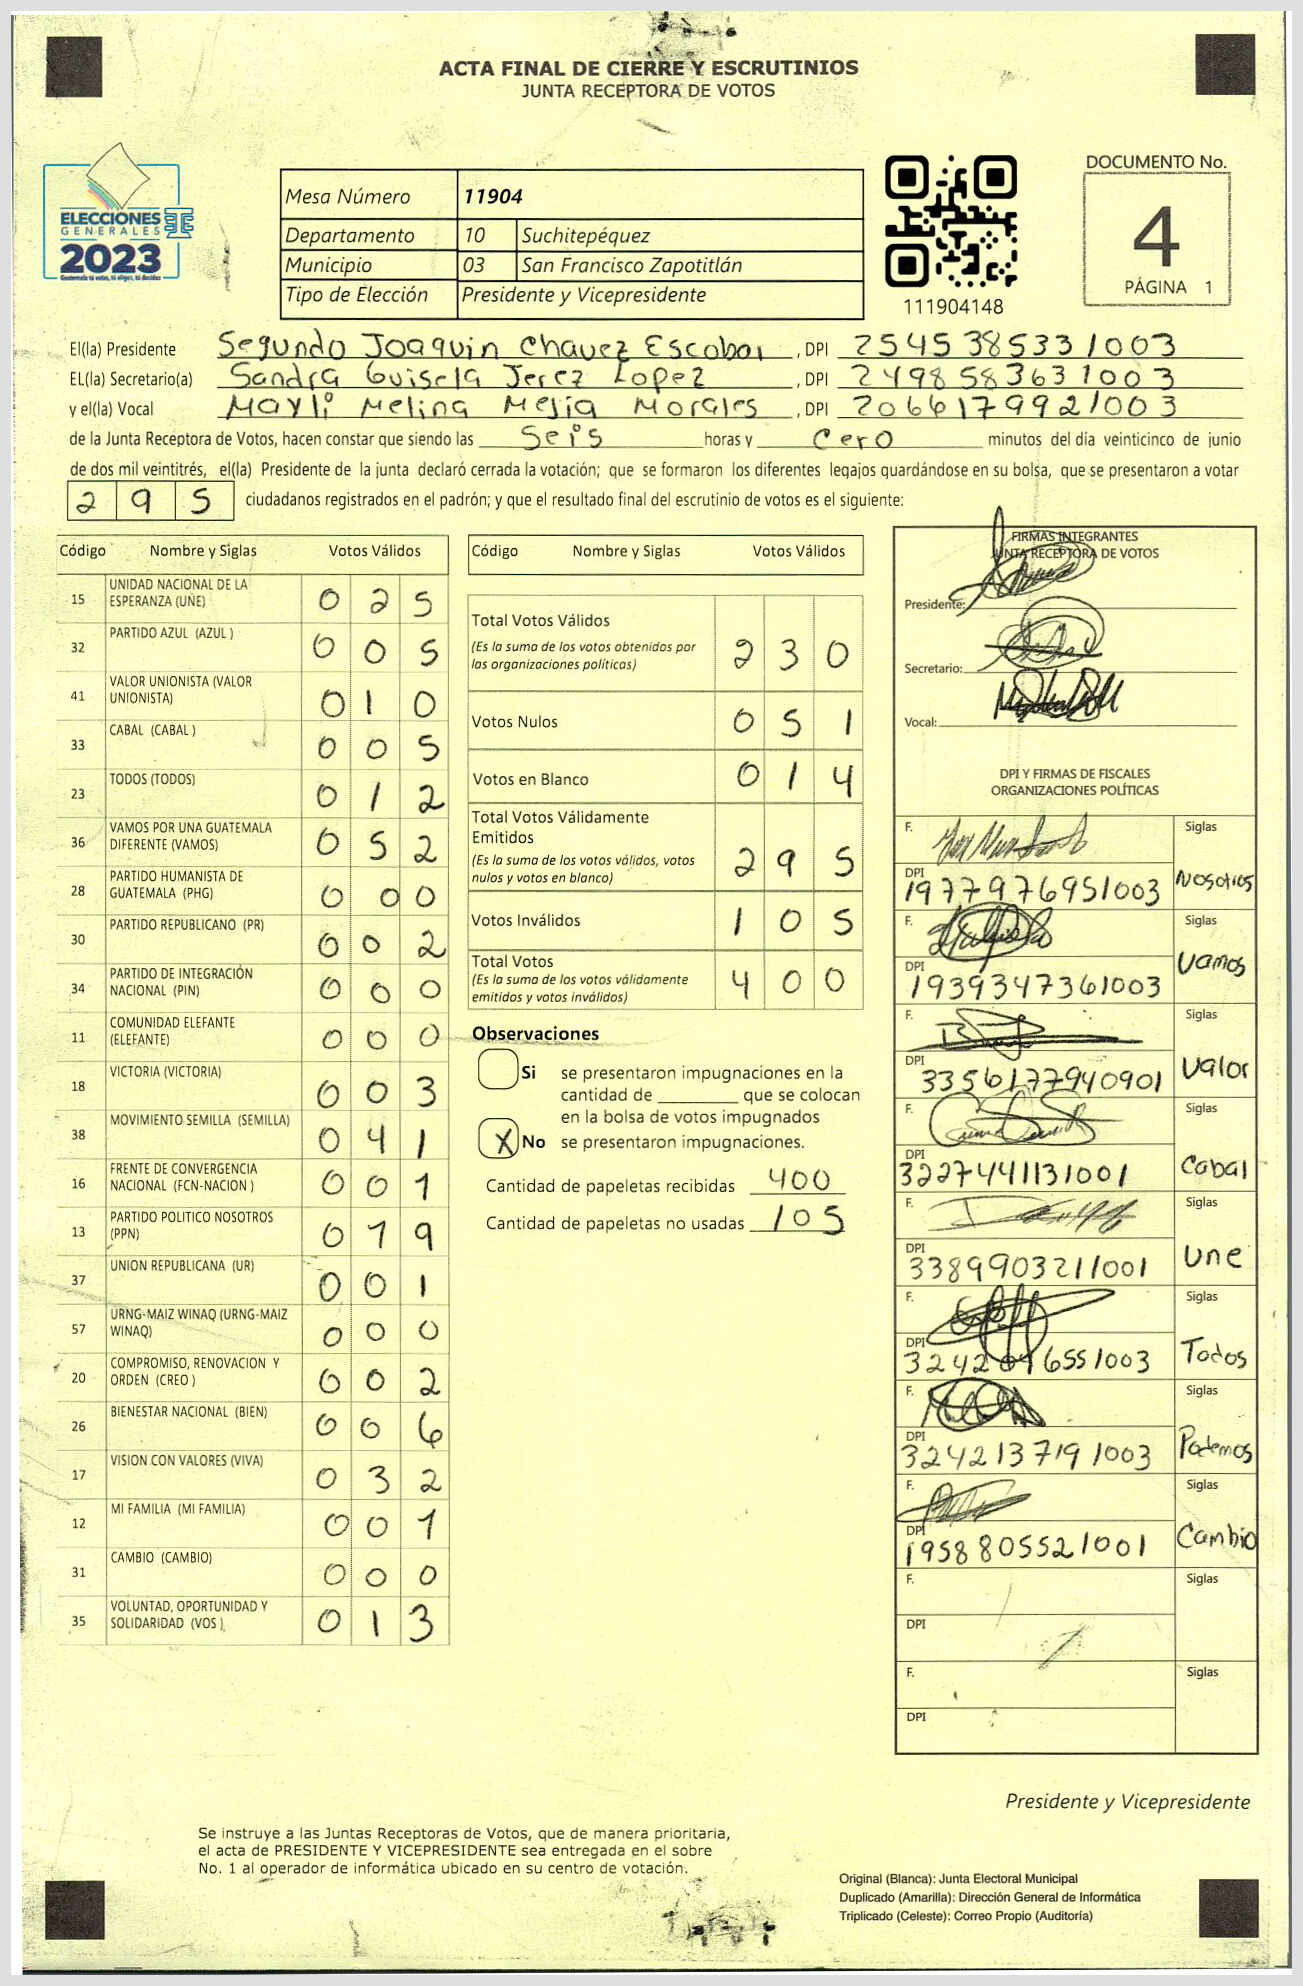 ACTA FINAL DE CIERRE Y ESCRUTINIOS
JUNTA RECEPTORA DE VOTOS
ELECCIONES
GENERALES
2023
Guatemala tú votas, tú eliges, tú decides
Mesa Número 11904
Departamento 10 Suchitepéquez
Municipio 03 San Francisco Zapotitlán
Tipo de Elección Presidente y Vicepresidente
111904148
DOCUMENTO No.
4
PÁGINA 1
El(la) Presidente Segundo Joaquin Chavez Escobar, DPI 2545385331003
EL(la) Secretario(a) Sandra Guisela Jerez Lopez, DPI 2498583631003
y el(la) Vocal Mayli Melina Mejia Morales, DPI 2066179921003
de la Junta Receptora de Votos, hacen constar que siendo las Seis horas y Cero minutos del día veinticinco de junio
de dos mil veintitrés, el(la) Presidente de la junta declaró cerrada la votación; que se formaron los diferentes legajos guardándose en su bolsa, que se presentaron a votar
295 ciudadanos registrados en el padrón; y que el resultado final del escrutinio de votos es el siguiente:
Código Nombre y Siglas Votos Válidos
15 UNIDAD NACIONAL DE LA ESPERANZA (UNE) 025
32 PARTIDO AZUL (AZUL ) 005
41 VALOR UNIONISTA (VALOR UNIONISTA) 010
33 CABAL (CABAL ) 005
23 TODOS (TODOS) 012
36 VAMOS POR UNA GUATEMALA DIFERENTE (VAMOS) 052
28 PARTIDO HUMANISTA DE GUATEMALA (PHG) 000
30 PARTIDO REPUBLICANO (PR) 002
34 PARTIDO DE INTEGRACIÓN NACIONAL (PIN) 000
11 COMUNIDAD ELEFANTE (ELEFANTE) 000
18 VICTORIA (VICTORIA) 003
38 MOVIMIENTO SEMILLA (SEMILLA) 041
16 FRENTE DE CONVERGENCIA NACIONAL (FCN-NACION ) 001
13 PARTIDO POLITICO NOSOTROS (PPN) 019
37 UNION REPUBLICANA (UR) 001
57 URNG-MAIZ WINAQ (URNG-MAIZ WINAQ) 000
20 COMPROMISO, RENOVACION Y ORDEN (CREO ) 002
26 BIENESTAR NACIONAL (BIEN) 006
17 VISION CON VALORES (VIVA) 032
12 MI FAMILIA (MI FAMILIA) 001
31 CAMBIO (CAMBIO) 000
35 VOLUNTAD, OPORTUNIDAD Y SOLIDARIDAD (VOS ) 013
Código Nombre y Siglas Votos Válidos
Total Votos Válidos 230
(Es la suma de los votos obtenidos por
las organizaciones políticas)
Votos Nulos 051
Votos en Blanco 014
Total Votos Válidamente
Emitidos 295
(Es la suma de los votos válidos, votos
nulos y votos en blanco)
Votos Inválidos 105
Total Votos 400
(Es la suma de los votos válidamente
emitidos y votos inválidos)
Observaciones
Si se presentaron impugnaciones en la
cantidad de ________ que se colocan
en la bolsa de votos impugnados
X No se presentaron impugnaciones.
Cantidad de papeletas recibidas 400
Cantidad de papeletas no usadas 105
FIRMAS INTEGRANTES
JUNTA RECEPTORA DE VOTOS
Presidente:
Secretario:
Vocal:
DPI Y FIRMAS DE FISCALES
ORGANIZACIONES POLÍTICAS
F. Siglas
DPI 1977976951003 Nosotros
F. Siglas
DPI 1939347361003 Vamos
F. Siglas
DPI 3356177940901 Valor
F. Siglas
DPI 3227441131001 Cabal
F. Siglas
DPI 3389903211001 Une
F. Siglas
DPI Todos
F. Siglas
DPI 3242137191003 Podemos
F. Siglas
DPI 1958805521001 Cambio
F. Siglas
DPI
F. Siglas
DPI
Presidente y Vicepresidente
Se instruye a las Juntas Receptoras de Votos, que de manera prioritaria,
el acta de PRESIDENTE Y VICEPRESIDENTE sea entregada en el sobre
No. 1 al operador de informática ubicado en su centro de votación.
Original (Blanca): Junta Electoral Municipal
Duplicado (Amarilla): Dirección General de Informática
Triplicado (Celeste): Correo Propio (Auditoría)